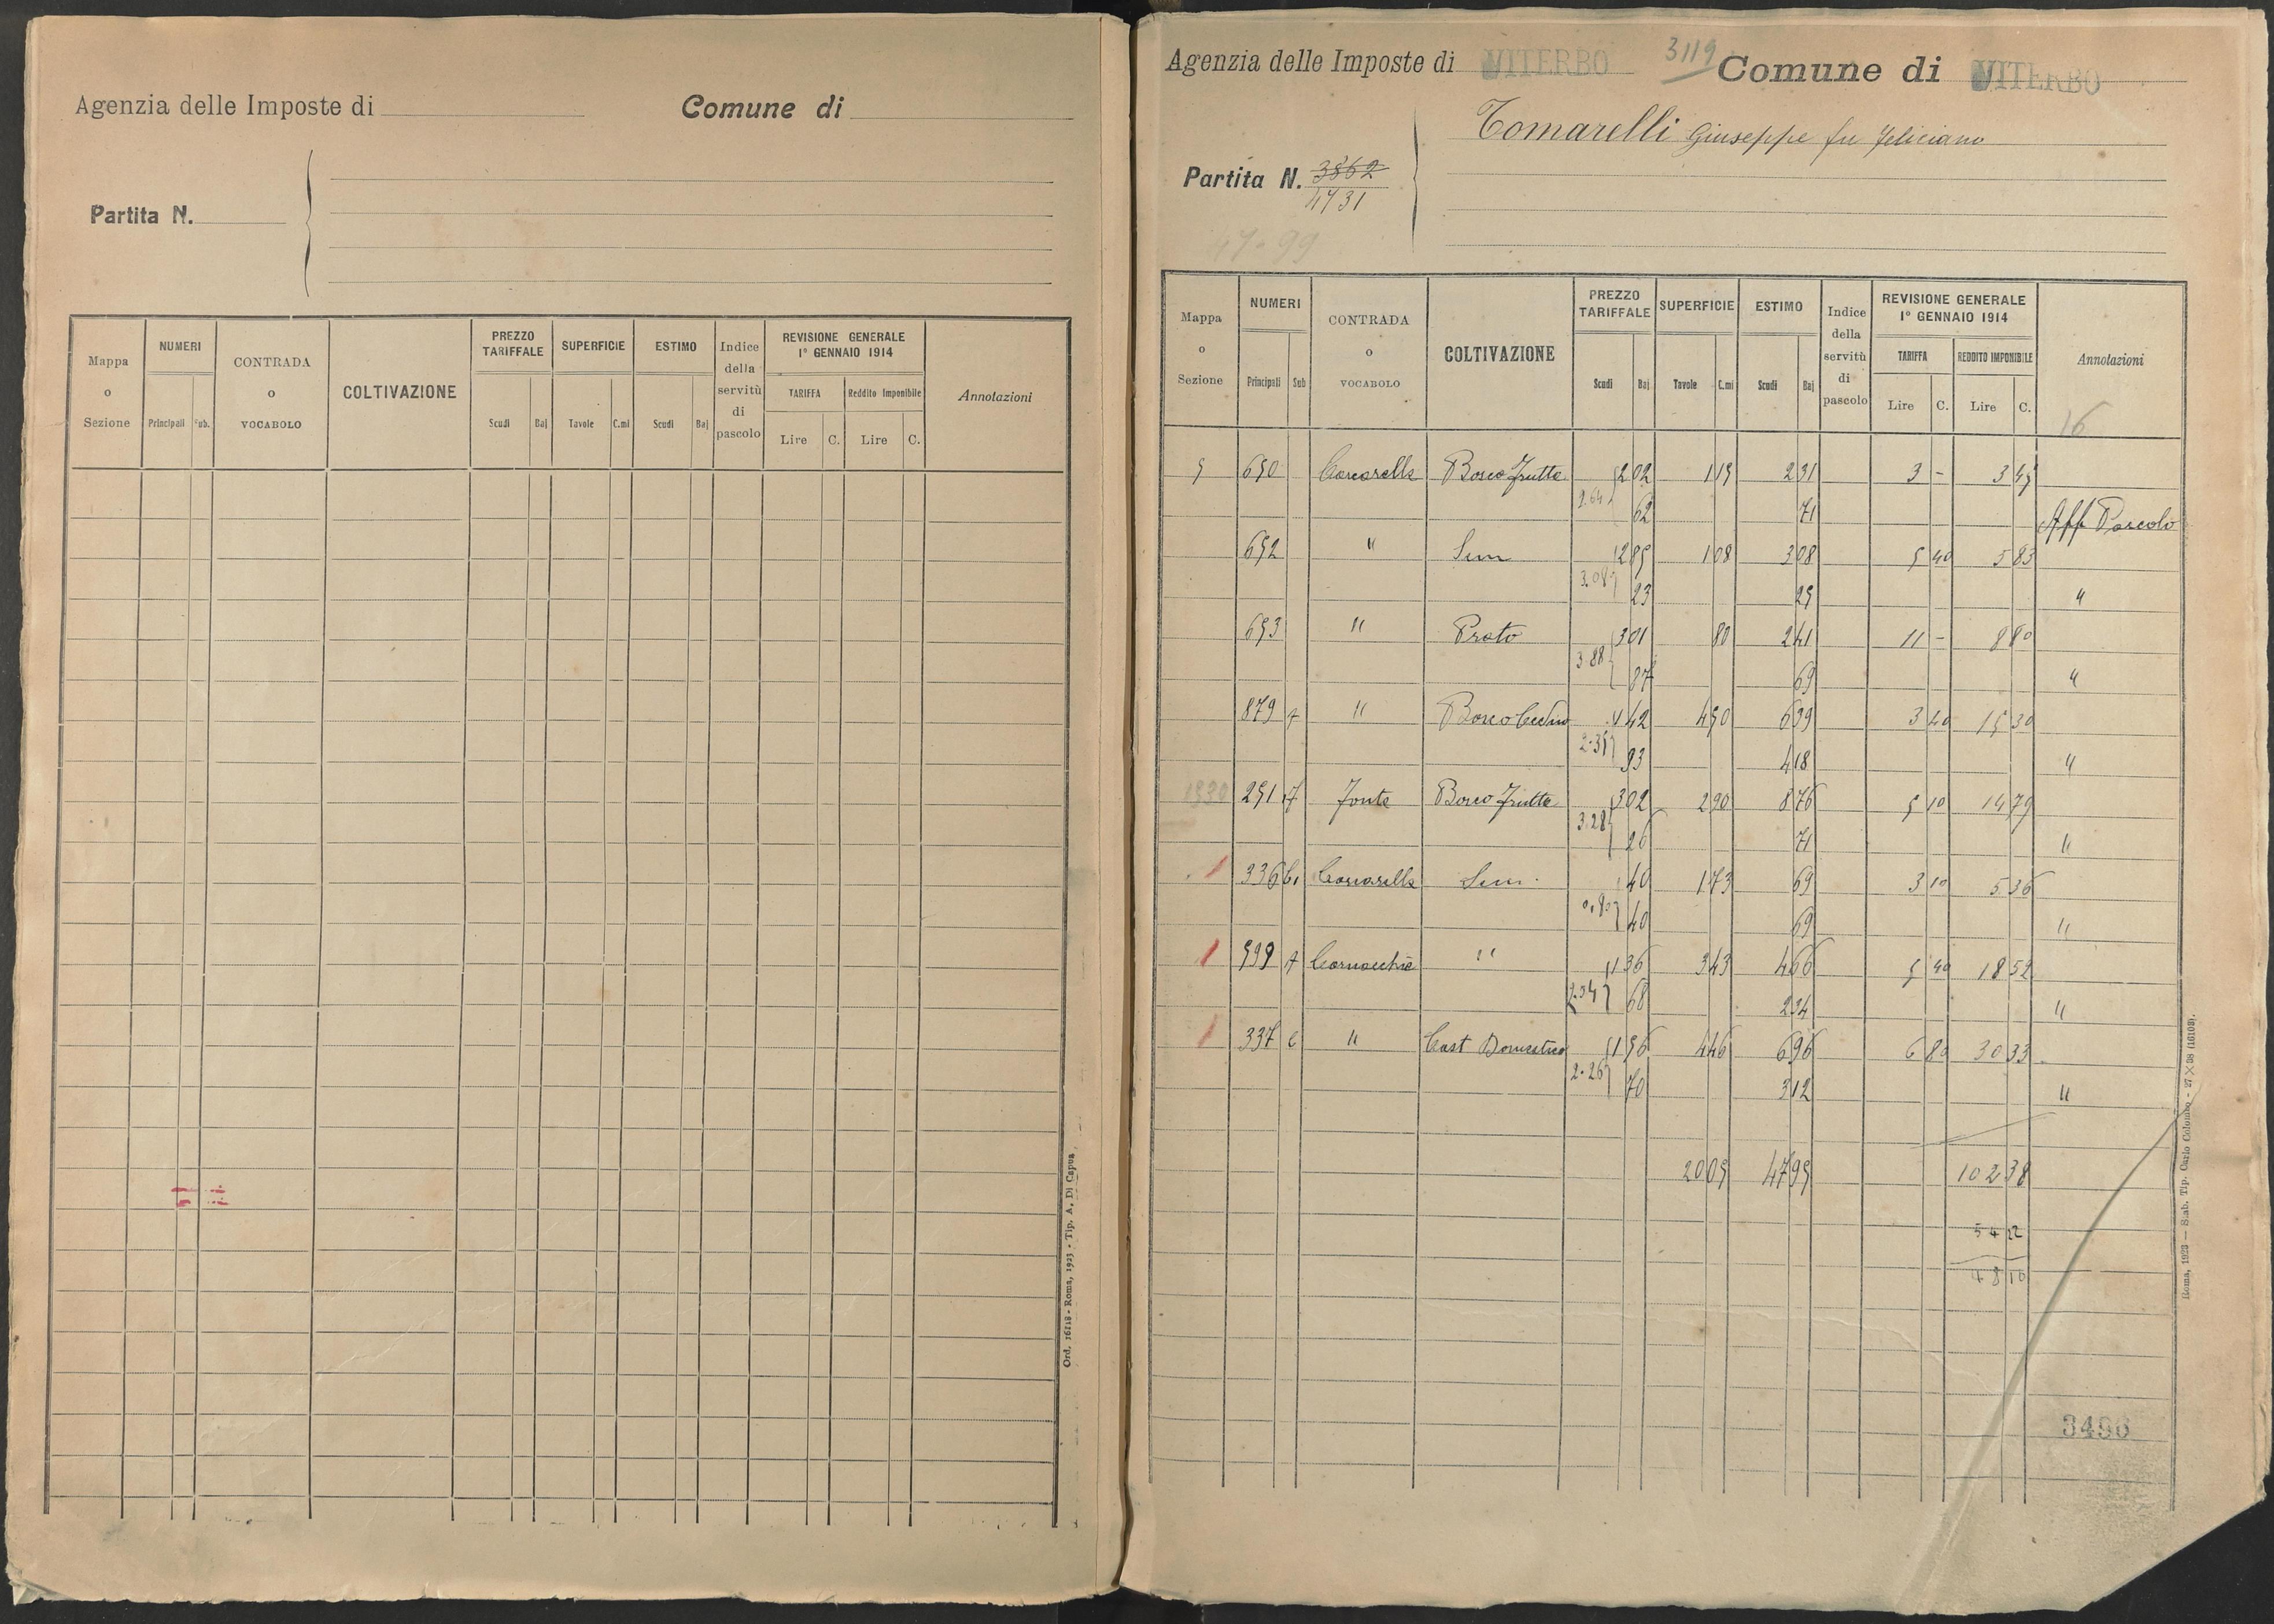 Agenzia delle Imposte di Comune di
Partita N.
Mappa o Sezione NUMERI Principali Sub. CONTRADA o VOCABOLO COLTIVAZIONE PREZZO TARIFFALE Scudi Baj SUPERFICIE Tavole C.mi ESTIMO Scudi Baj Indice della servitù di pascolo REVISIONE GENERALE 1° GENNAIO 1914 TARIFFA Lire C. Reddito Imponibile Lire C. Annotazioni
Ord. 16118 - Roma, 1923 - Tip. A. Di Capua
Agenzia delle Imposte di VITERBO 3119 Comune di VITERBO
Tomarelli Giuseppe fu Feliciano
Partita N. 3862
4731
47-99
Mappa o Sezione NUMERI Principali Sub CONTRADA o VOCABOLO COLTIVAZIONE PREZZO TARIFFALE Scudi Baj SUPERFICIE Tavole C.mi ESTIMO Scudi Baj Indice della servitù di pascolo REVISIONE GENERALE 1° GENNAIO 1914 TARIFFA Lire C. REDDITO IMPONIBILE Lire C. Annotazioni
16
5 650 Carcarella Bosco frutto 2 02 1 15 2 31 3 - 3 45
2.64 62 71 Aff Pascolo
652 " Sem 2 85 1 08 3 08 5 40 5 83
3.08 23 25 "
653 " Prato 3 01 80 2 41 11 - 8 80
3.88 87 69 "
879 " 1 42 4 50 6 39 3 40 15 30
2.35 93 4 18 "
1930 251 Fonte Bosco frutto 3 02 2 90 8 76 5 10 14 79
3.28 26 71 "
1 336 Carcarella Sem. 40 1 73 69 3 10 5 36
0.80 40 69 "
1 599 Cornacchie " 1 36 3 43 4 66 5 40 18 52
2.04 68 2 34 "
1 337 " Cast Domestico 1 56 4 46 6 96 6 80 30 33
2.26 70 3 12 "
20 05 47 95 102 38
54 22
48 16
3496
Roma, 1923 — Stab. Tip. Carlo Colombo - 27×38 (16109).